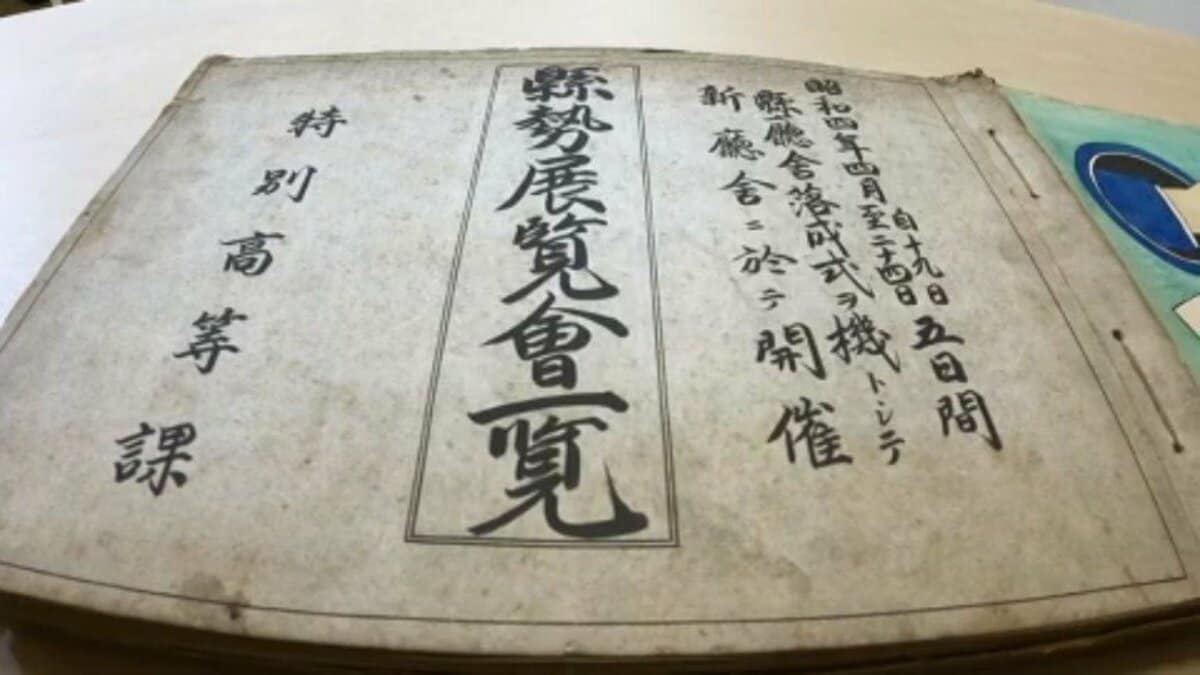 昭和四年四月自十九日至二十四日五日間
縣廳舍落成式ヲ機トシテ
新廳舍ニ於テ開催
縣勢展覧會一覧
特別高等課